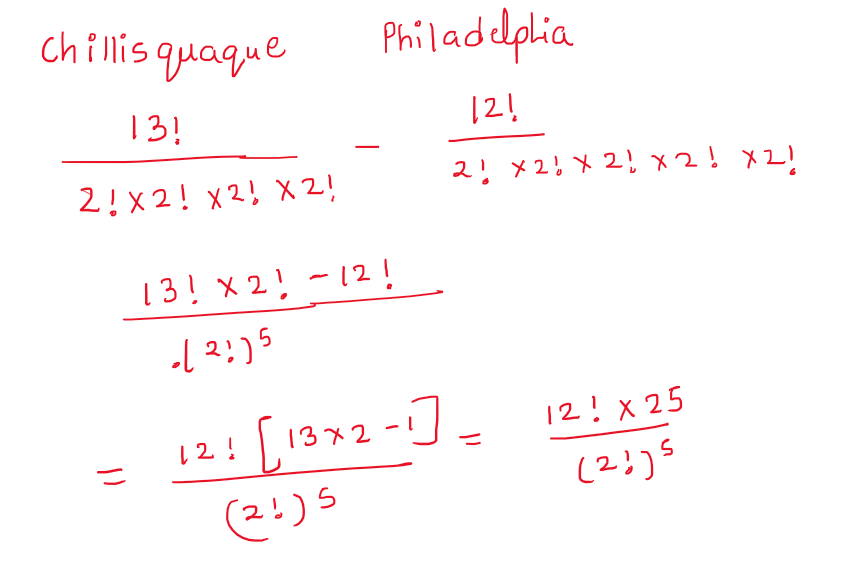 Chillisquaque Philadelphia
13! / 2! × 2! × 2! × 2! - 12! / 2! × 2! × 2! × 2! × 2!
13! × 2! - 12! / .(2!)^5
= 12! [13 × 2 - 1] / (2!)^5 = 12! × 25 / (2!)^5